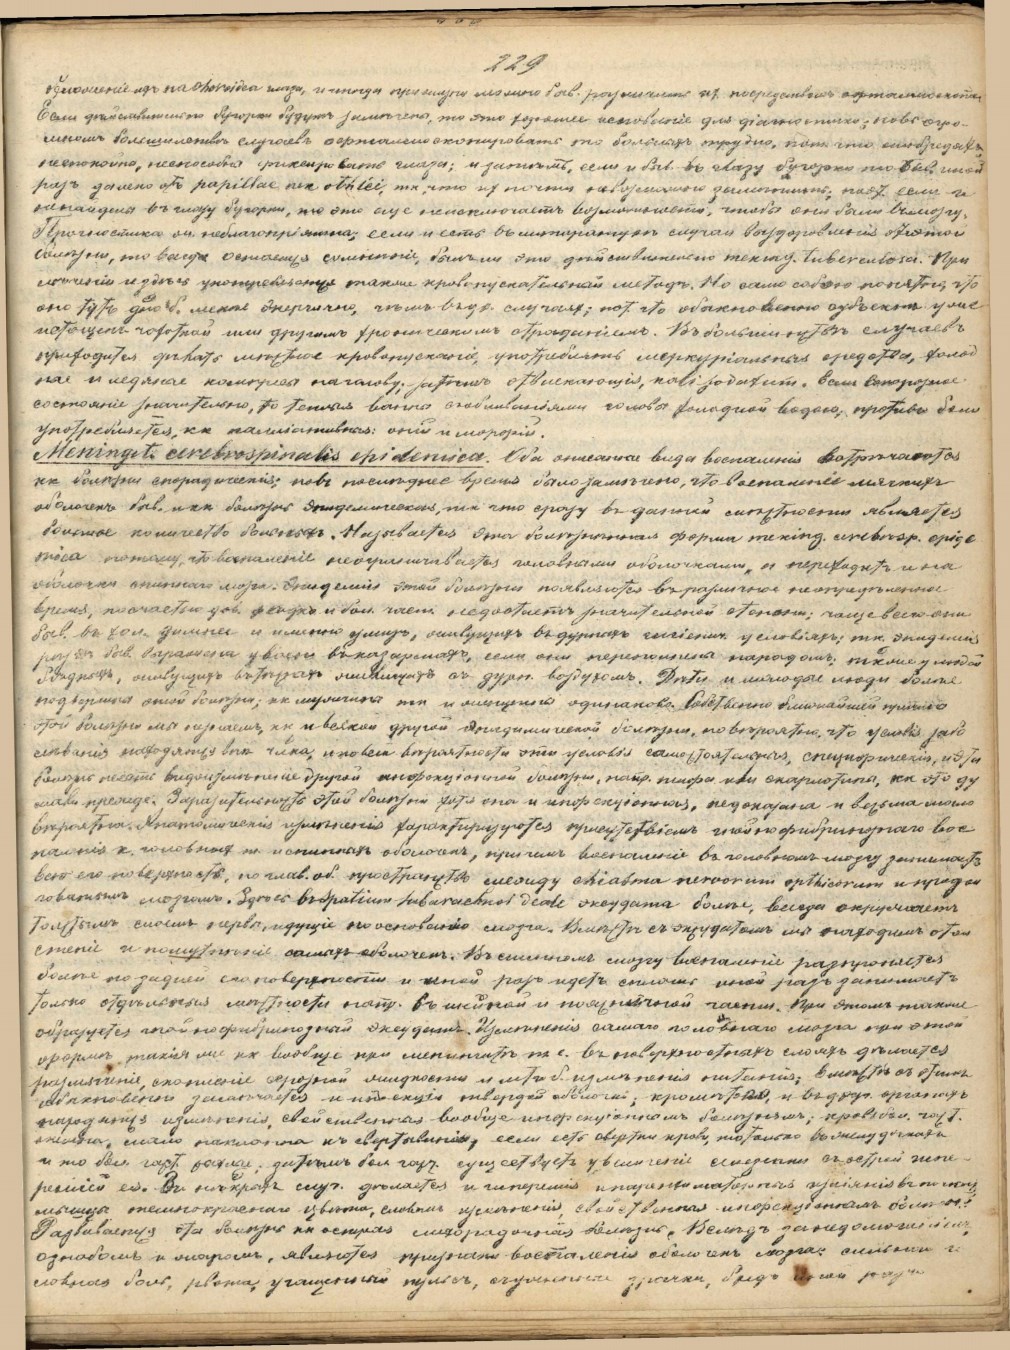 229
на Choroidea глаза, и иногда при жизни можно быв. различить их посредством офтальмоскопа.
Если действительно бугорки будут замечены, то это хорошее основание для диагностики; но въ огро-
мномъ большинстве случаевъ офтальмоскопировать то больныхъ трудно, пот. что они бредятъ,
неспокойны, неспособны фиксировать глаза; и затѣмъ, если и быв. въ глазу бугорки то быв. иной
разъ далеко отъ papillae n. optici, тк. что их почти невозможно замѣтить; наоб. если и
не найдемъ въ глазу бугорки, то это еще не исключаетъ возможности, чтобы они были въ мозгу.
Прогностика оч. неблагопріятна; если и есть въ литературѣ случаи выздоровленія отъ этой
болѣзни, то всегда остается сомнѣніе, былъ ли это дѣйствительно mening. tuberculosa. При
леченіи и здѣсь употребляется такой же кровопускательный методъ. Но само собою понятно, что
оно тутъ д. б. менѣе энергично, чѣмъ въ др. случаях; пот. что обыкновенно субъектъ уже
истощенъ чахоткой или другимъ хроническимъ страданіемъ. Въ большинствѣ случаевъ
приходится дѣлать мѣстное кровопусканіе, употреблять меркуріальныя средства, холод
ные и ледяные компрессы на голову, затѣмъ отвлекающія, kali jodatum. Если
состояніе значительно, то теплыя ванны съ обливаніями головы холодной водою, противъ боли
употребляется, кк палліативныя: опій и морфій.
Meningit. cerebrospinalis epidemica. Оба описанные вида воспаленія встрѣчаются
кк болѣзни спорадическія; но въ послѣднее время было замѣчено, что воспаленіе мягкихъ
оболочекъ быв. и кк болѣзнь эпидемическая, тк что сразу въ данной мѣстности является
большое количество больныхъ. Называется эта болѣзненная форма mening. cerebrosp. epide
mica потому, что воспаленіе не ограничивается головными оболочками, а переходитъ и на
оболочки спиннаго мозга. Эпидеміи этой болѣзни появляются въ различное неопредѣленное
время, и бол. част. недостаетъ значительной степени; чаще всего они
быв. въ хол. зимнее и именно у лицъ, живущихъ въ дурныхъ гигіенич. условіяхъ; тк. эпидемія
разъ быв. выражена у войскъ въ казармахъ, если они переполнены народомъ; также у людей
бѣдныхъ, живущихъ въ тѣсныхъ жилищахъ съ дурн. воздухомъ. Дѣти и молодые люди болѣе
подвержены этой болѣзни; кк мужчины тк и женщины одинаково. Собственно ближайшей причины
этой болѣзни мы не знаемъ, кк и всякой другой эпидемической болѣзни, но вѣроятно, что условія забо
лѣванія находятся внѣ чел-ка, и по всей вѣроятности эти условія самостоятельныя, специфическія, и эта
болѣзнь не есть видоизмѣненіе другой инфекціонной болѣзни, напр. тифа или скарлатины, кк это ду
мали прежде. Заразительность этой болѣзни хотя она и инфекціонная, не доказана и весьма мало
вѣроятна. Анатомическія измѣненія характеризуются присутствіемъ гнойнофибринознаго вос
паленія кк головныхъ тк и спинныхъ оболочекъ, причемъ воспаленіе въ головномъ мозгу занимаетъ
всю его поверхность, но глав. об. пространство между chiasma nervorum opthicorum и продол
говатымъ мозгомъ. Здѣсь въ spatium subarachnoideale эксудата болѣе, всегда окружаетъ
толстымъ слоемъ нервы, идущіе по основанію мозга. Вмѣстѣ съ эксудатомъ мы находимъ утол
щеніе и помутнѣніе самыхъ оболочекъ. Въ спинномъ мозгу воспаленіе распространяется
болѣе по задней его поверхности и иной разъ идетъ сплошь иной разъ занимаетъ
только отдѣльныя мѣстности напр. въ шейной и поясничной части. При этомъ также
образуется гнойнофибринозный эксудатъ. Измѣненія самаго головнаго мозга при этой
формѣ такія же кк вообще при менингитѣ т. е. въ поверхностныхъ слояхъ дѣлается
размягченіе, скопленіе серозной жидкости и т. п. измѣненія питанія; вмѣстѣ съ этимъ
обыкновенно замѣчается и инъекція твердой оболочки; кромѣ того, и въ друг. органахъ
находятся измѣненія, свойственныя вообще инфекціоннымъ болѣзнямъ; кровь бол. част.
жидка, мало наклонна къ свертыванію, если есть свертки крови, то только въ желудочкахъ
и то бол. част. рыхлые; затѣмъ бол. част. существуетъ увеличеніе селезенки съ острой гипе-
реміей ея. Въ нѣкоторыхъ случ. дѣлается и гиперемія и паренхиматозныя измѣненія въ
мышцы темнокраснаго цвѣта, словомъ измѣненія, свойственныя инфекціоннымъ болѣзнямъ.
Развивается эта болѣзнь кк острая лихорадочная болѣзнь. Вслѣдъ за недомоганіемъ,
ознобомъ и жаромъ, являются признаки воспаленія оболочекъ мозга: сильная го
ловная боль, рвота, учащенный пульсъ, съуженные зрачки, бредъ иной разъ